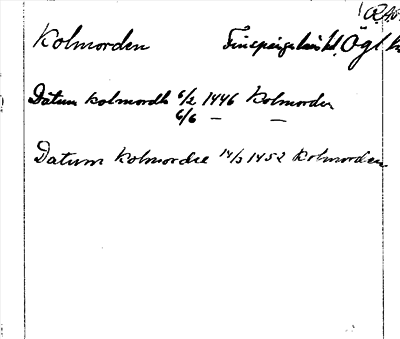 (RAO
Kolmorden Finspånga läns hd, Ögl.
Datum kolmordh 6/2 1446 Kolmorden
6/6 — —
Datum Kolmordie 14/3 1452 Kolmorden